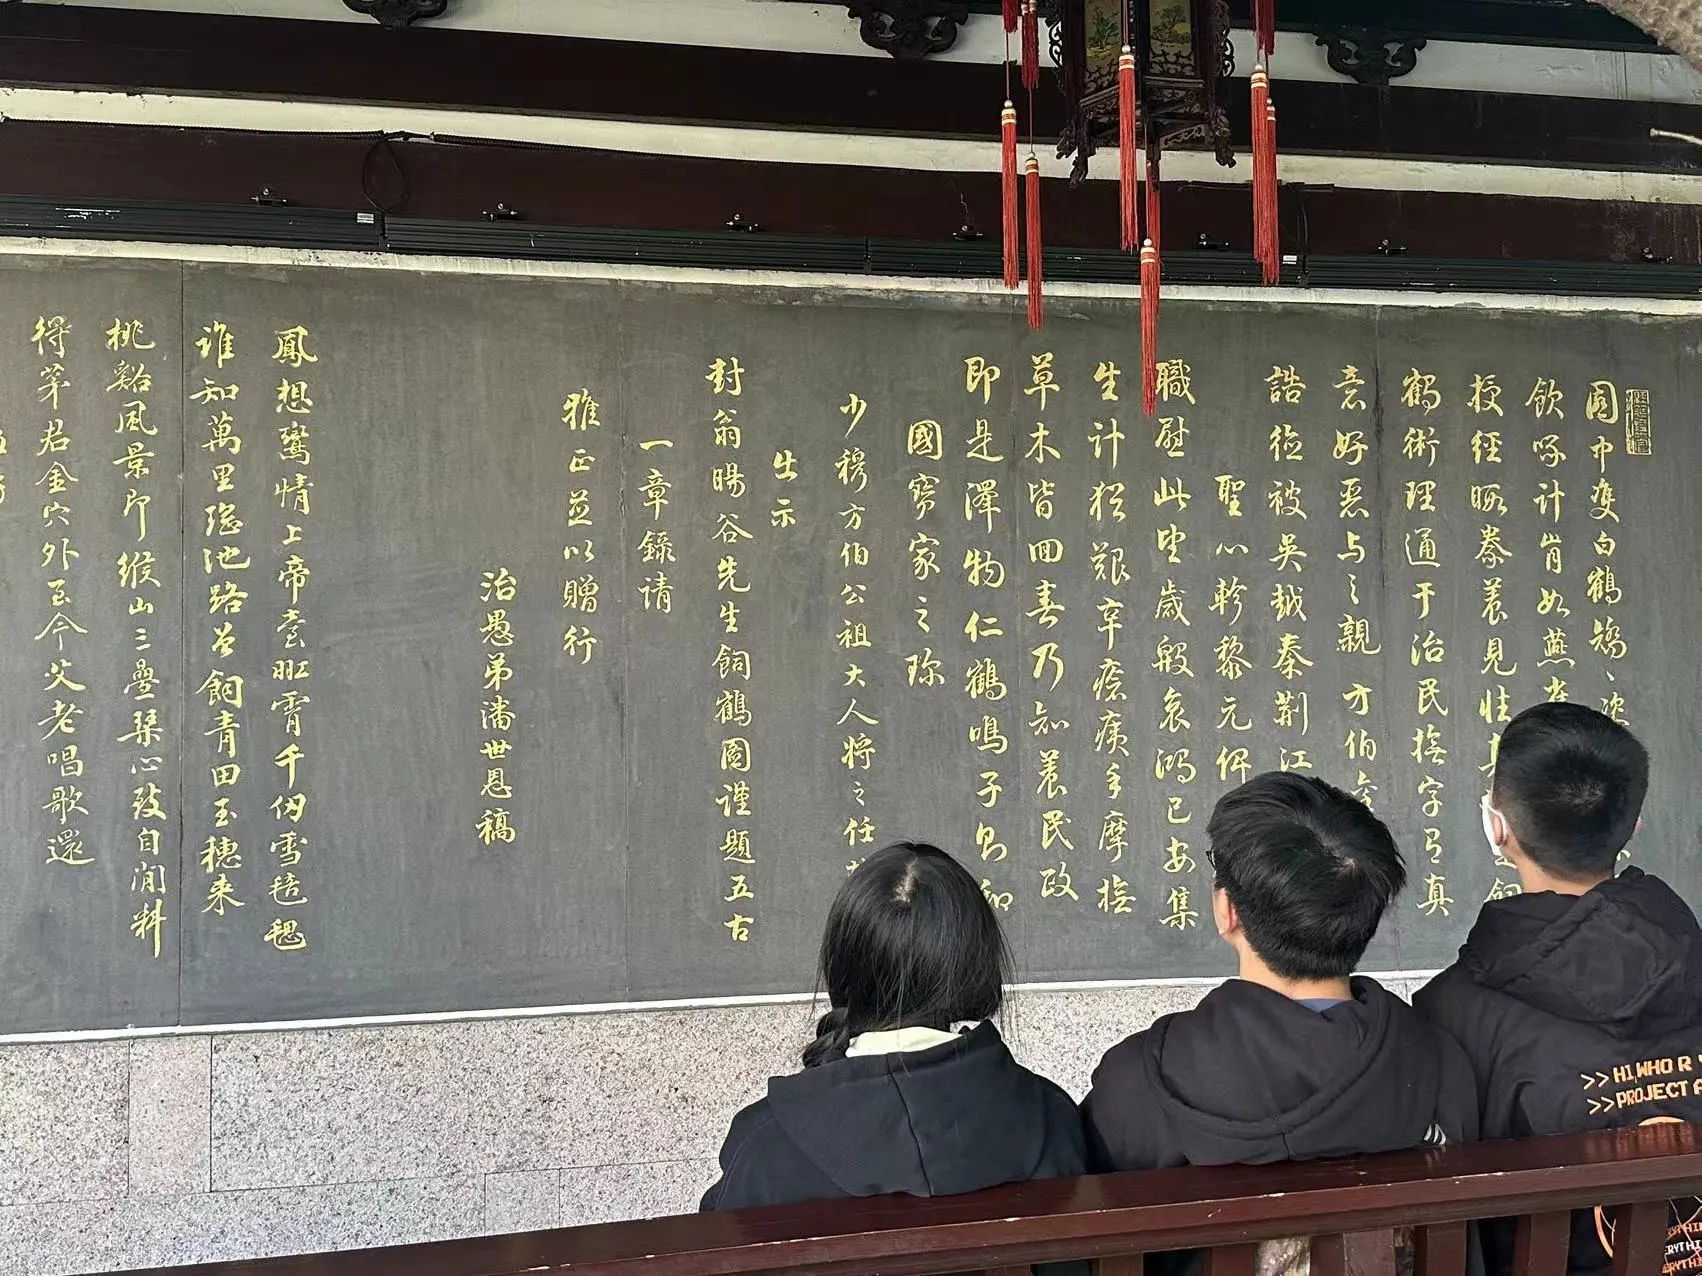 園中雙白鶴矯矯
飲啄計肯如燕雀
授經暇豢養見性
鶴術理通于治民撫字有真
意好惡与之親方伯
誥德被吳越秦荆江
聖心軫黎元俾
職慰此望歲殷哀鴻已安集
生計猶艱辛瘡痍手摩撫
草木皆回春乃知養民政
即是澤物仁鶴鳴子自和
國寶家之珍
少穆方伯公祖大人將之任
出示
封翁暘谷先生飼鶴圖謹題五古
一章錄請
雅正並以贈行
治愚弟潘世恩稿
鳳想鸞情上帝臺翀霄千仞雪毰毸
誰知萬里瑤池路曾飼青田玉穗来
桃谿風景即緱山三疊琹心致自閒料
得茅君金穴外至今父老唱歌還
>>HI,WHO R
>>PROJECT